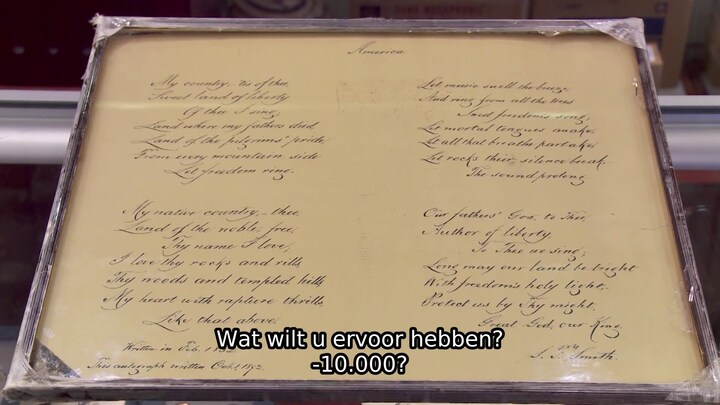 America
My country, 'tis of thee,
Sweet land of liberty
Of thee I sing;
Land where my fathers died,
Land of the pilgrims' pride,
From every mountain side
Let freedom ring.
My native country, – thee,
Land of the noble, free,
Thy name I love;
I love thy rocks and rills,
Thy woods and templed hills,
My heart with rapture thrills
Like that above.
Written in Feb. 1832
This autograph written Oct.
Let music swell the breeze,
And ring from all the trees
freedom's song;
Let mortal tongues awake,
Let all that breathe partake,
Let rocks their silence break,
The sound prolong.
Our fathers' God, to Thee,
Author of liberty
To Thee we sing;
Long may our land be bright
With freedom's holy light;
Protect us by Thy might,
Great God, our King.
S. F. Smith.
Wat wilt u ervoor hebben?
-10.000?